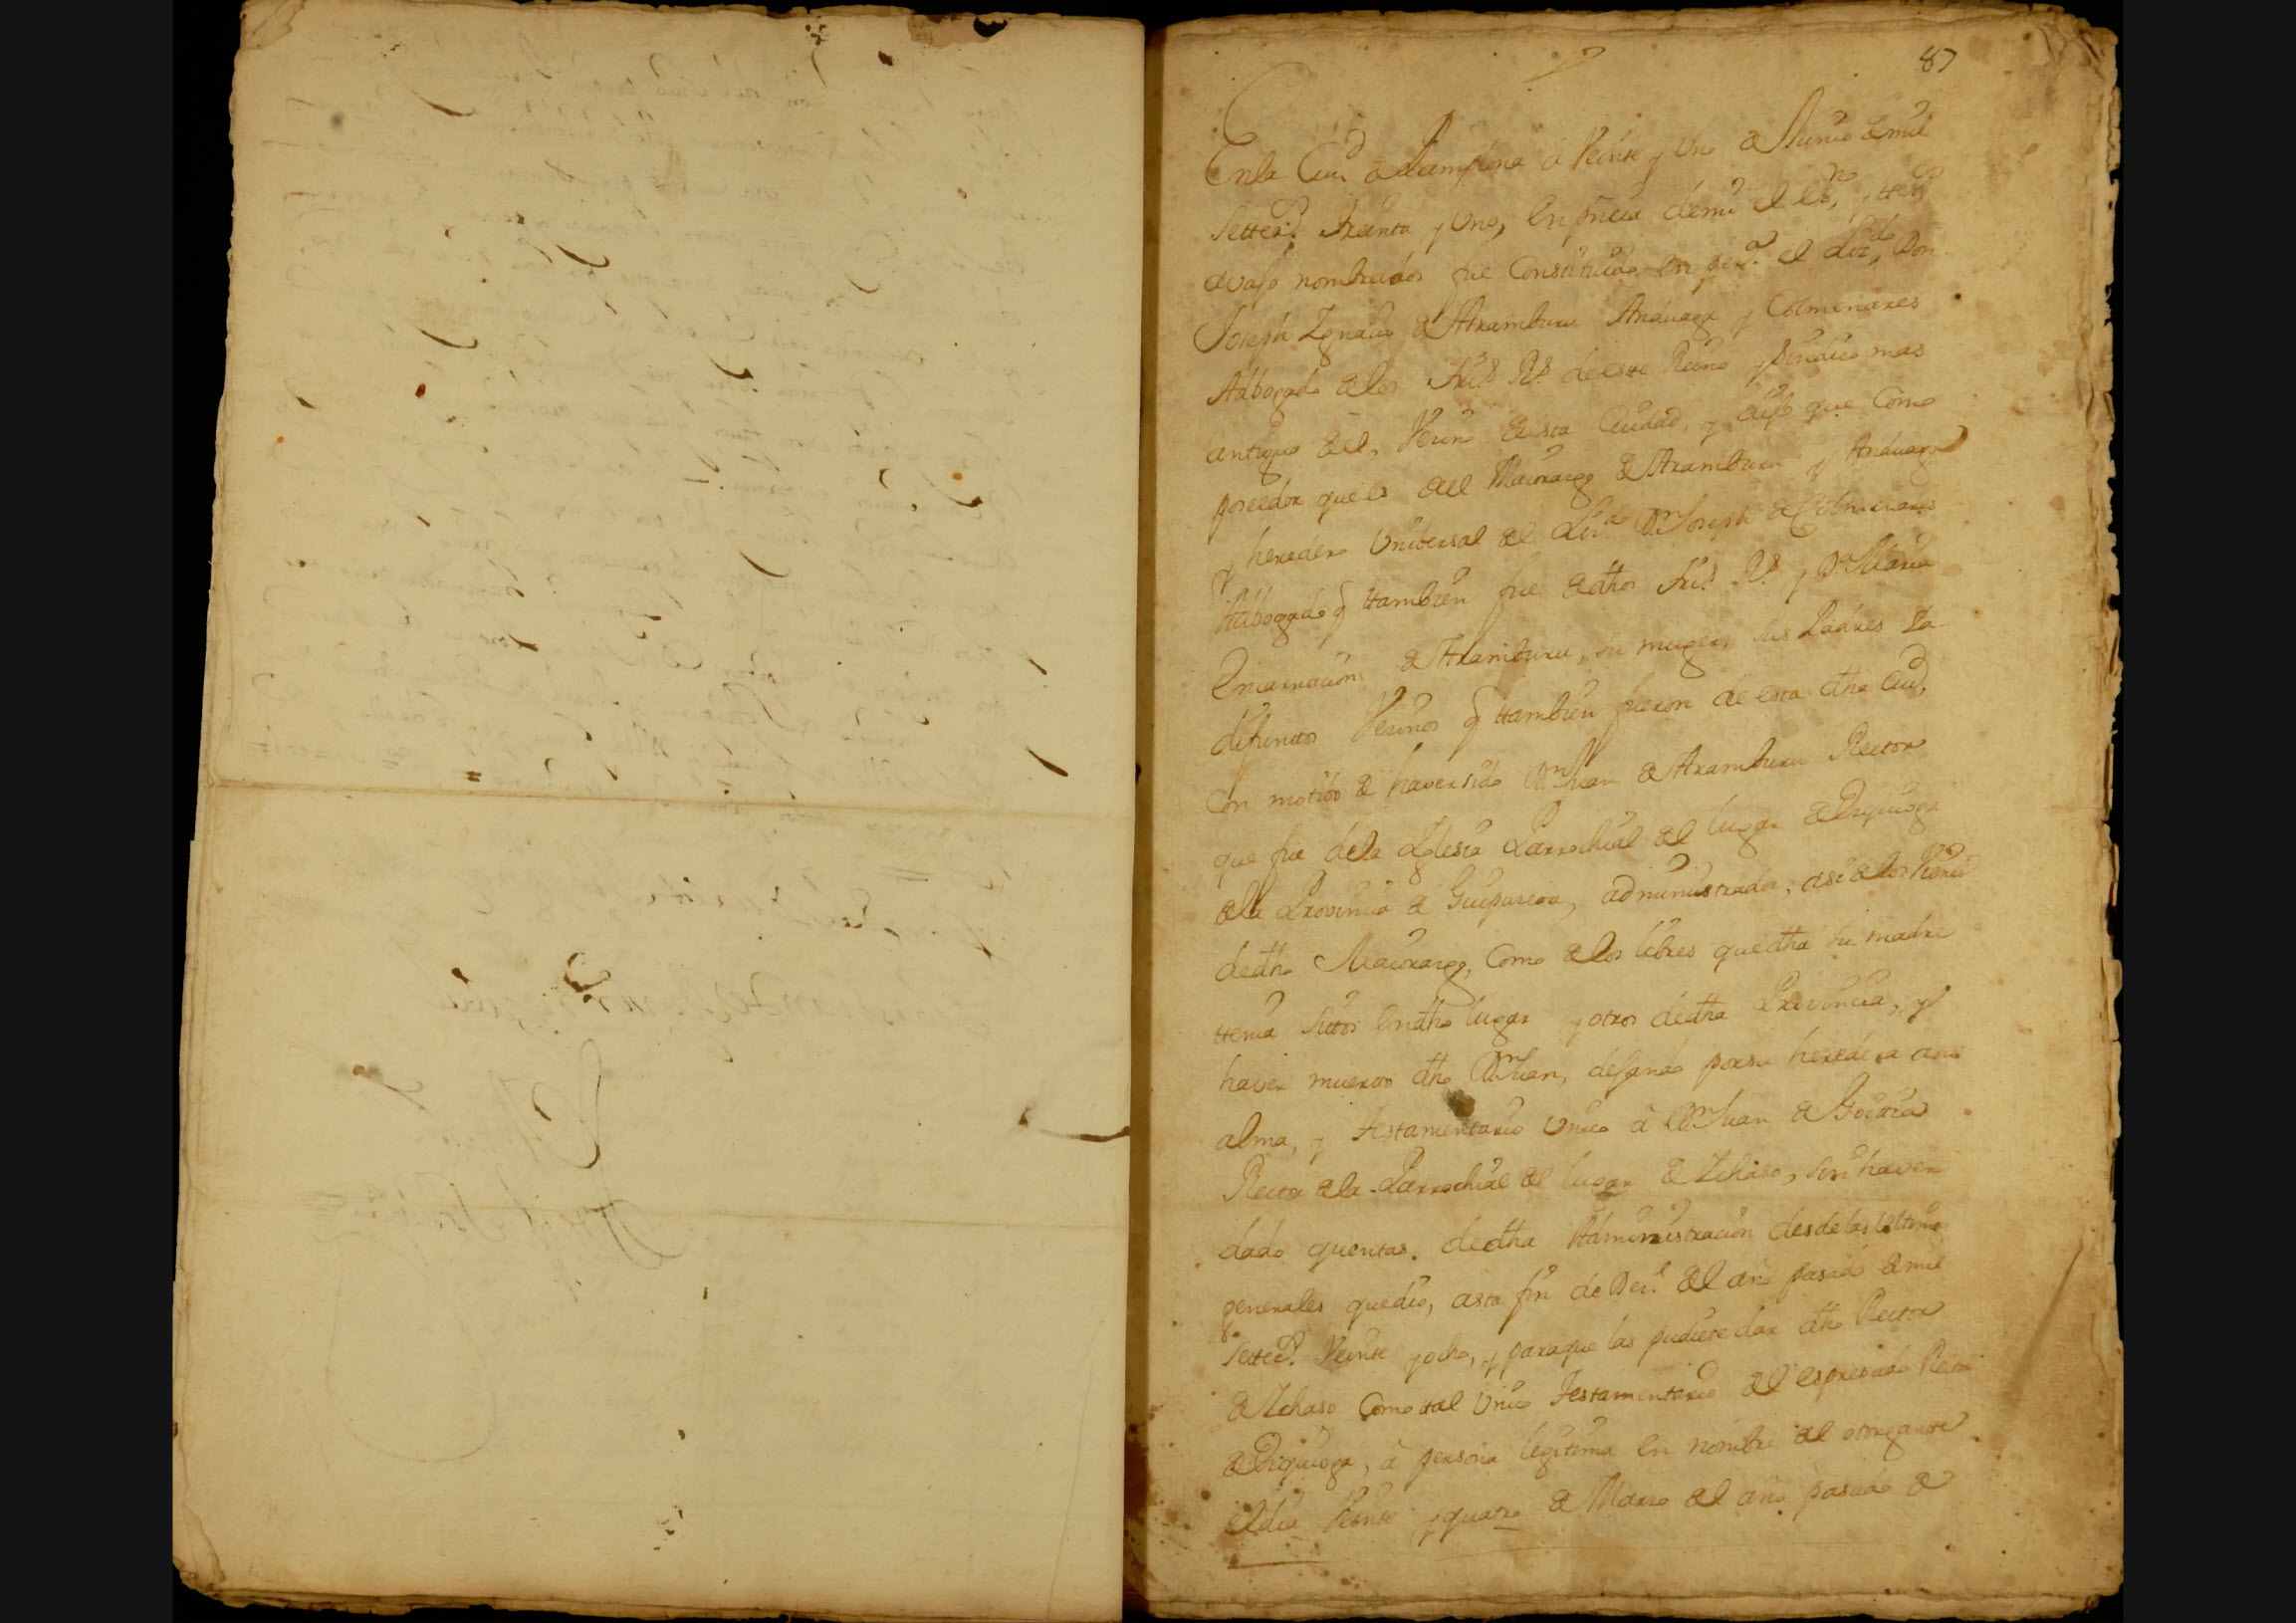 87
En la Ciud de Pamplona â Veinte y Uno de Junio de mil
Settezs. treinta y Uno, En pressa de mi el Essno, y ttesos
avajo nombrados fue Constituido En persa. el Lizdo, Don
Joseph Ignacio de Aramburu Anduaga y Colmenares
Abbogado de los Tris. Rs. de este Reino y Sindico mas
antiguo de el, Vecino de esta Ciudad, y dijo que Como
poseedor que es del Maiorazgo de Aramburu y Anduaga
y heredero Unibersal del Lizdo Dn Joseph de Colmenares
Abbogado q ttambien fue de dhos Tris. Rs. y Da Maria
Encarnacion de Aramburu, su muger, sus Padres Ia
difuntos Vecinos q ttambien fueron de esta dha Ciud,
Con motibo de haver sido Dn Juan de Aramburu Rector
que fue de la Iglesia Parrochial del lugar de Ezquioga
de la Provincia de Guipuzcoa, administrador, asi de los Vienes
de dho Maiorazgo, Como de los libres que dha su madre
ttenia Sittos En dho lugar y otros de dha Provincia, y
haver muerto dho Dn Juan, dejando por su heredera a su
alma, y testamentario Unico â Dn Juan de Goitia
Rector de la Parrochial del lugar de Ichaso, sin haver
dado quentas de dha Administracion desde las Ultimas
generales que dio, asta fin de Dezre. del año pasado de mil
Settezs. Veinte y ocho, y para que las pudiese dar dho Rector
de Ichaso Como ttal Unico testamentario del espresado Rector
de Ezquioga, â persona legitima En nombre del otorgante
el dia Veinte y quatro de Marzo del año pasado de